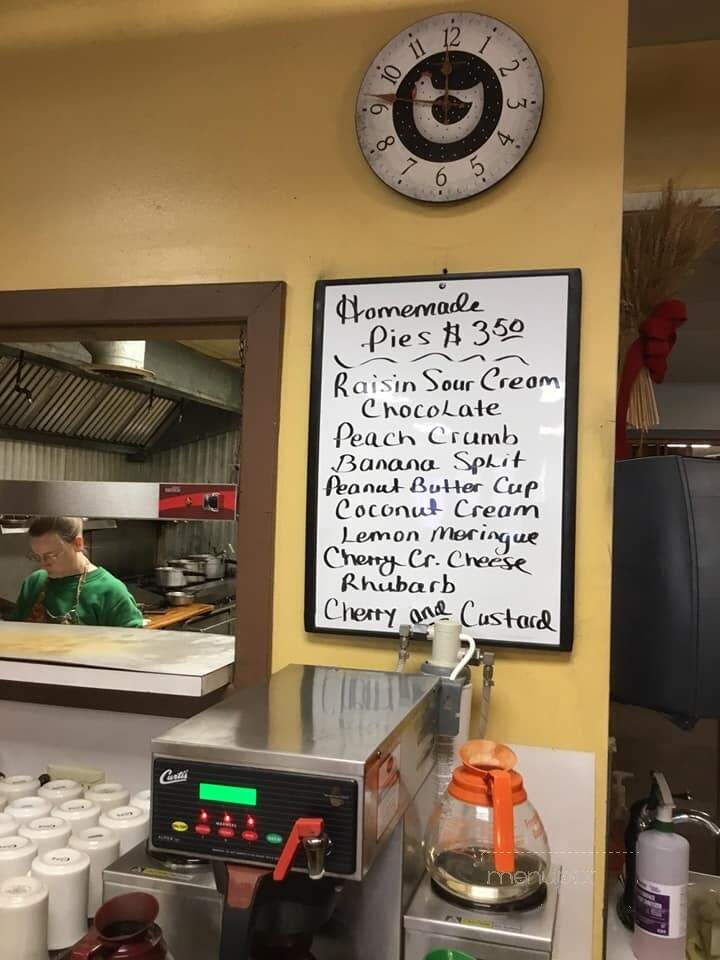 12
1
2
3
4
5
6
7
8
9
10
11
Homemade
Pies $ 3.50
Raisin Sour Cream
Chocolate
Peach Crumb
Banana Split
Peanut Butter Cup
Coconut Cream
Lemon Moringue
Cherry Cr. Cheese
Rhubarb
Cherry and Custard
Curtis
menupix